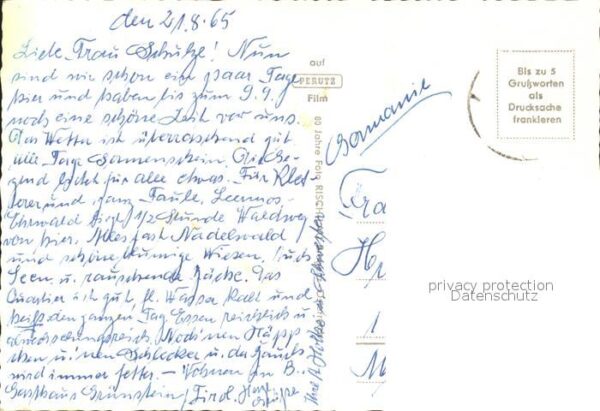 den 21.8.65
Liebe Frau Schulze! Nun
sind wir schon ein paar Tage
hier und haben bis zum 9.9.
noch eine schöne Zeit vor uns.
Das Wetter ist überraschend gut
alle Tage Sonnenschein. Die Ge-
gend bietet für alle etwas. Für Klet
terer und ganz Faule. Lermoos-
Ehrwald liegt 1/2 Stunde Waldweg
von hier. Alles fast Nadelwald
und schöne blumige Wiesen, auch
Seen u. rauschende Bäche. Das
Quartier ist gut, fl. Wasser kalt und
heiß den ganzen Tag. Essen reichlich u.
abwechslungsreich. Noch 'nen Häpp
chen u. 'nen Schlecker u. der Bauch
wird immer fetter. — Wohnen in B..
Gasthaus Grünstein, Tirol.
Ihre
Schwester
auf
PERUTZ
Film
80 Jahre Foto RISCH
Germanie
Bis zu 5
Grußworten
als
Drucksache
frankieren
Fra
1
M
privacy protection
Datenschutz